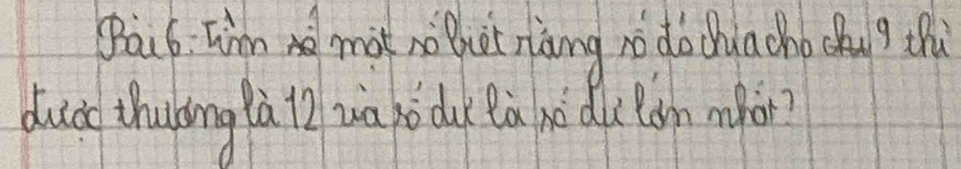 Bài 6: Tìm số một số biết rằng số đó chia cho 9 thì
được thương là 12 và số dư là số dư lớn nhất?